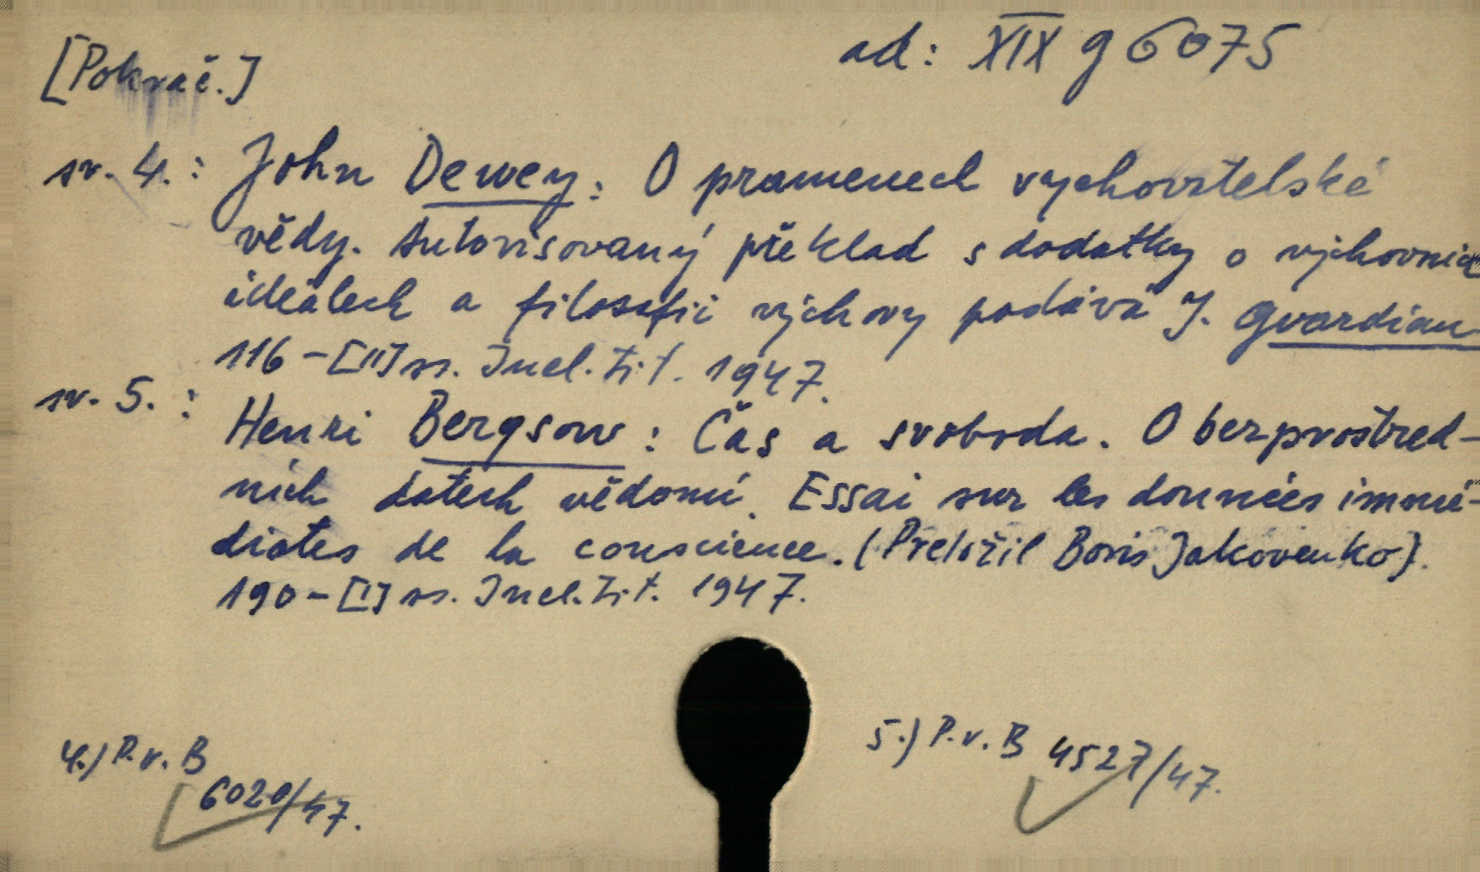 [Pokrač.]
ad: XIX g 6075
sv. 4.: John Dewey: O pramenech vychovatelské
vědy. Autorisovaný překlad s dodatky o výchovných
ideálech a filosofii výchovy podává J. Gvardian
116-[II] ss. Incl. tit. 1947.
sv. 5.: Henri Bergson: Čas a svoboda. O bezprostřed-
ních datech vědomí. Essai sur les données immé-
diates de la conscience. (Přeložil Boris Jakovenko).
190-[I] ss. Incl. tit. 1947.
4.) P.v.B
6020/47.
5.) P.v.B 4527/47.